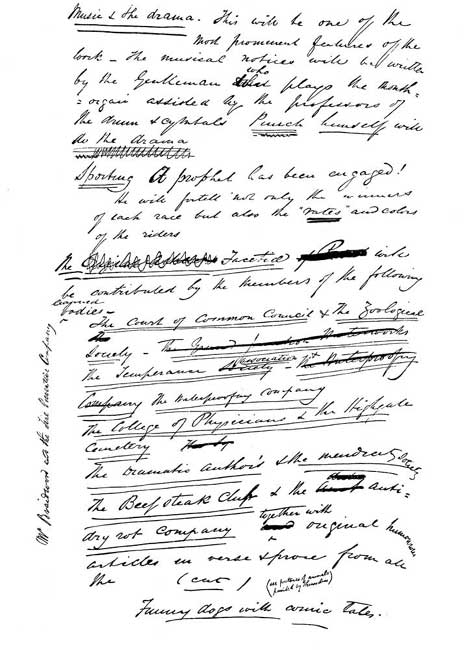 Music & the drama. This will be one of the
most prominent features of the
work - The musical notices will be written
by the Gentleman who plays the mouth-
= organ assisted by the professors of
the drum & cymbals Punch himself will
do the drama
Sporting A prophet has been engaged!
He will foretell not only the winners
of each race but also the "vates" and colors
of the riders
The Facetiæ will
be contributed by the members of the following
learned
bodies -
The Court of Common Council & The Zoological
Society -
The Temperance association - The Waterproofing
Company The Waterproofing Company
The College of Physicians & the Highgate
Cemetery
The Dramatic Author's & the mendicity society
The Beef steak Club & the anti-
dry rot company together with original humorous
articles in verse & prose from all
the (cut)
Funny dogs with comic tales.